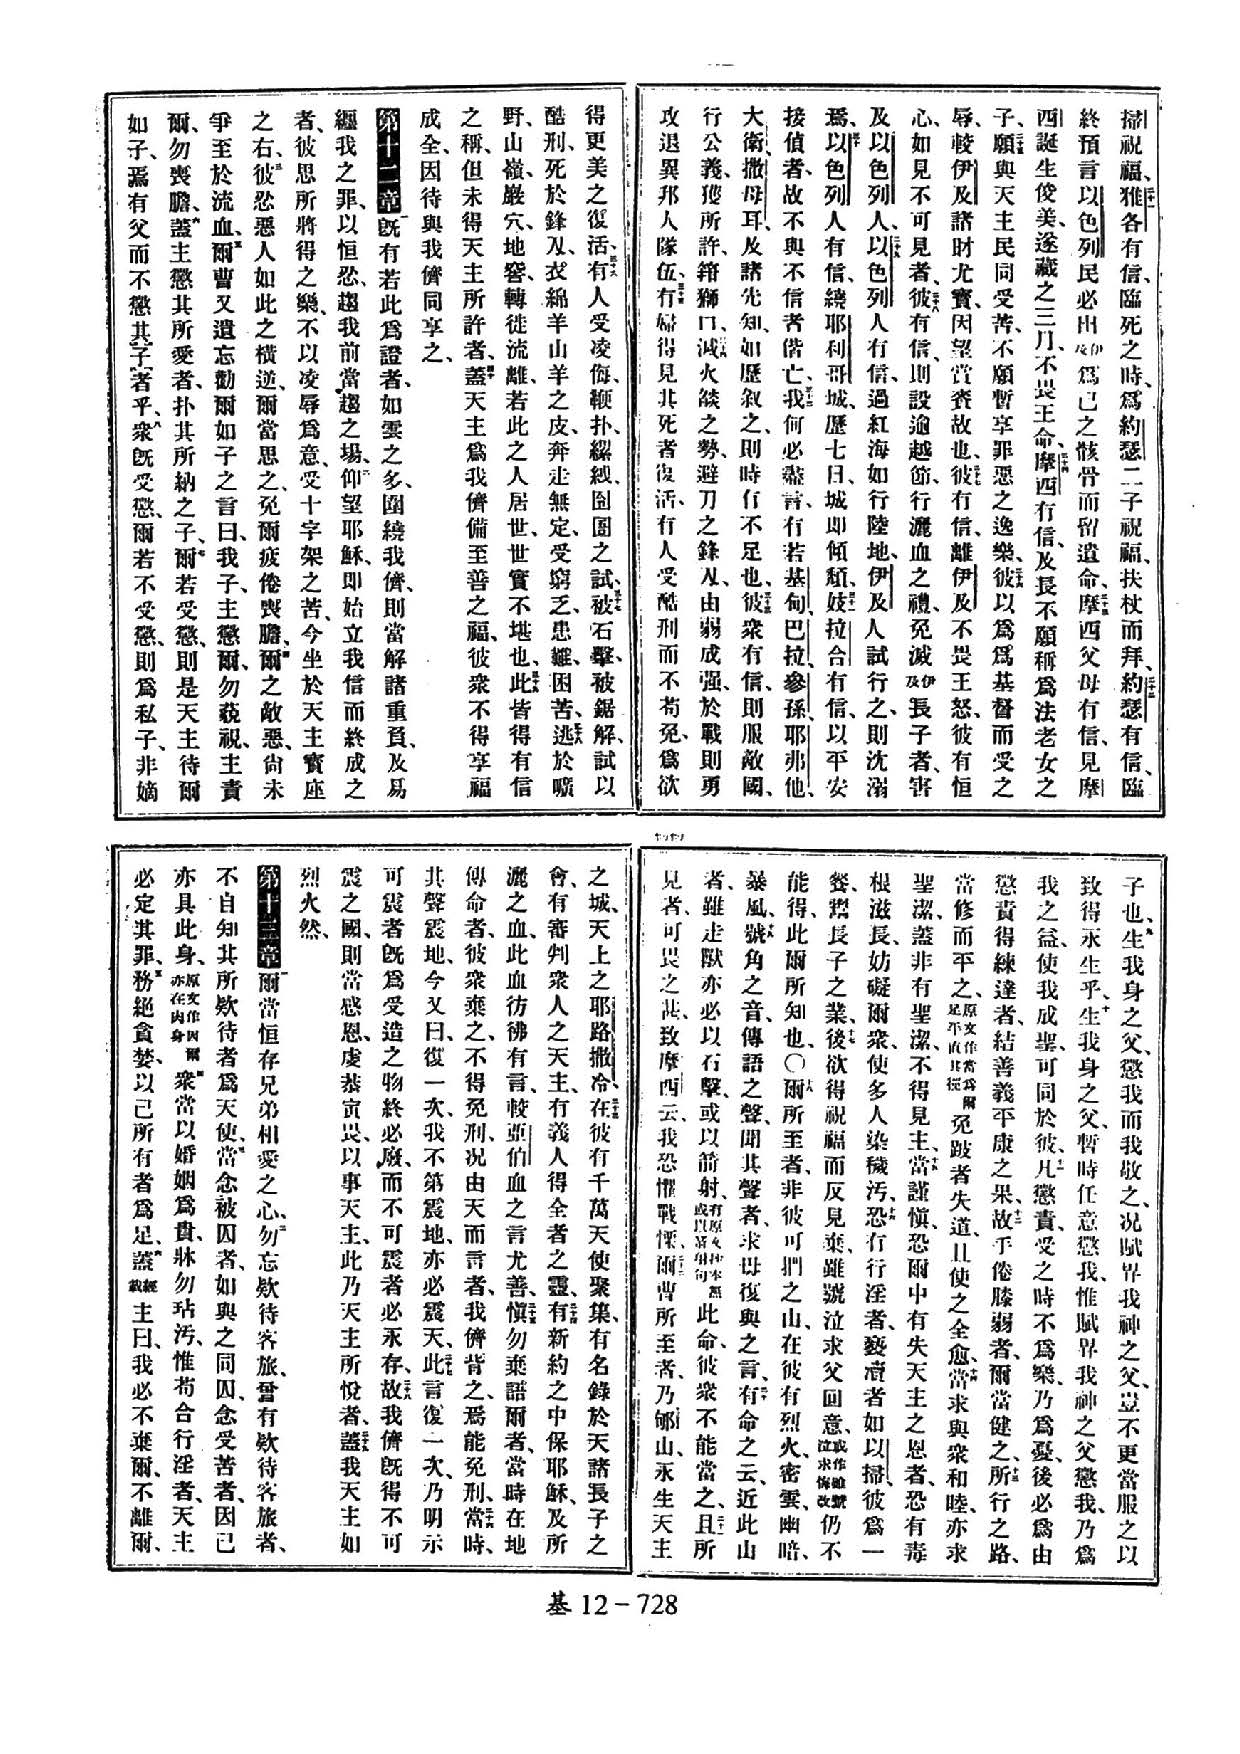 掃祝福、二十一雅各有信、臨死之時、爲約瑟二子祝福、扶杖而拜、二十二約瑟有信、臨
終預言以色列民必出伊及爲己之骸骨而留遺命、二十三摩西父母有信、見摩
西誕生俊美、遂藏之三月、不畏王命、二十四摩西有信、及長不願稱爲法老女之
子、二十五願與天主民同受苦、不願暫享罪惡之逸樂、二十六彼以爲爲基督而受之
辱、較伊及諸財尤寶、因望賞賚故也、二十七彼有信、離伊及不畏王怒、彼有恒
心、如見不可見者、二十八彼有信、則設逾越節、行灑血之禮、免滅伊及長子者害
及以色列人、二十九以色列人有信、過紅海如行陸地、伊及人試行之、則沈溺
焉、三十以色列人有信、繞耶利哥城、歷七日、城即傾頹、三十一妓拉合有信、以平安
接偵者、故不與不信者偕亡、三十二我何必盡言、有若基甸、巴拉、參孫、耶弗他、
大衛、撒母耳、及諸先知、如歷叙之、則時有不足也、三十三彼衆有信、則服敵國、
行公義、獲所許、箝獅口、三十四滅火燄之勢、避刀之鋒刄、由弱成强、於戰則勇、
攻退異邦人隊伍、三十五有婦得見其死者復活、有人受酷刑而不苟免、爲欲
得更美之復活、三十六有人受凌侮、鞭扑、縲絏、囹圄之試、三十七被石擊、被鋸解、試以
酷刑、死於鋒刄、衣綿羊山羊之皮、奔走無定、受窮乏、患難、困苦、三十八逃於曠
野山嶺、巖穴、地窖、轉徙流離、若此之人居世、世實不堪也、三十九此皆得有信
之稱、但未得天主所許者、四十蓋天主爲我儕備至善之福、彼衆不得享福
成全、因待與我儕同享之、
第十二章一既有若此爲證者、如雲之多、圍繞我儕、則當解諸重負、及易
纏我之罪、以恒忍、趨我前當趨之場、二仰望耶穌、即始立我信而終成之
者、彼思所將得之樂、不以凌辱爲意、受十字架之苦、今坐於天主寶座
之右、三彼忍惡人如此之橫逆、爾當思之、免爾疲倦喪膽、四爾之敵惡、尙未
爭至於流血、五爾曹又遺忘勸爾如子之言曰、我子、主懲爾、勿藐視、主責
爾、勿喪膽、六蓋主懲其所愛者、扑其所納之子、七爾若受懲、則是天主待爾
如子、焉有父而不懲其子者乎、八衆既受懲、爾若不受懲、則爲私子、非嫡
子也、九生我身之父、懲我而我敬之、况賦畀我神之父、豈不更當服之以
致得永生乎、十生我身之父、暫時任意懲我、惟賦畀我神之父懲我、乃爲
我之益、使我成聖、可同於彼、十一凡懲責、受之時不爲樂、乃爲憂、後必爲由
懲責得練達者、結善義平康之果、十二故手倦膝弱者、爾當健之、十三所行之路、
當修而平之、原文作當爲爾足平直其徑免跛者失道、且使之全愈、十四當求與衆和睦、亦求
聖潔、蓋非有聖潔、不得見主、十五當謹慎、恐爾中有失天主之恩者、恐有毒
根滋長、妨礙爾衆、使多人染穢汚、十六恐有行淫者、褻瀆者如以掃、彼爲一
餐、鬻長子之業、十七後欲得祝福而反見棄、雖號泣求父回意、或作雖號泣求悔改仍不
能得、此爾所知也、〇十八爾所至者、非彼可捫之山、在彼有烈火、密雲、幽暗、
暴風、十九號角之音、傳語之聲、聞其聲者、求毋復與之言、二十有命之云、近此山
者、雖走獸亦必以石擊、或以箭射、有原文抄本無或以箭射句此命、彼衆不能當之、二十一且所
見者、可畏之甚、致摩西云、我恐懼戰慄、二十二爾曹所至者、乃郇山、永生天主
之城、天上之耶路撒冷、二十三在彼有千萬天使聚集、有名錄於天諸長子之
會、有審判衆人之天主、有義人得全者之靈、二十四有新約之中保耶穌、及所
灑之血、此血彷彿有言、較亞伯血之言尤善、二十五愼勿棄語爾者、當時在地
傳命者、彼衆棄之、不得免刑、况由天而言者、我儕背之、焉能免刑、二十六當時、
其聲震地、今又曰、復一次、我不第震地、亦必震天、二十七此言復一次、乃明示
可震者既爲受造之物終必廢、而不可震者必永存、二十八故我儕既得不可
震之國、則當感恩、虔恭寅畏、以事天主、此乃天主所悅者、二十九蓋我天主如
烈火然、
第十三章一爾當恒存兄弟相愛之心、二勿忘欵待客旅、曾有欵待客旅者、
不自知其所欵待者爲天使、三當念被囚者、如與之同囚、念受苦者、因己
亦具此身、原文作因爾亦在肉身四衆當以婚姻爲貴、牀勿玷汚、惟苟合行淫者、天主
必定其罪、五務絕貪婪、以己所有者爲足、六蓋經載主曰、我必不棄爾、不離爾、
基 12－728